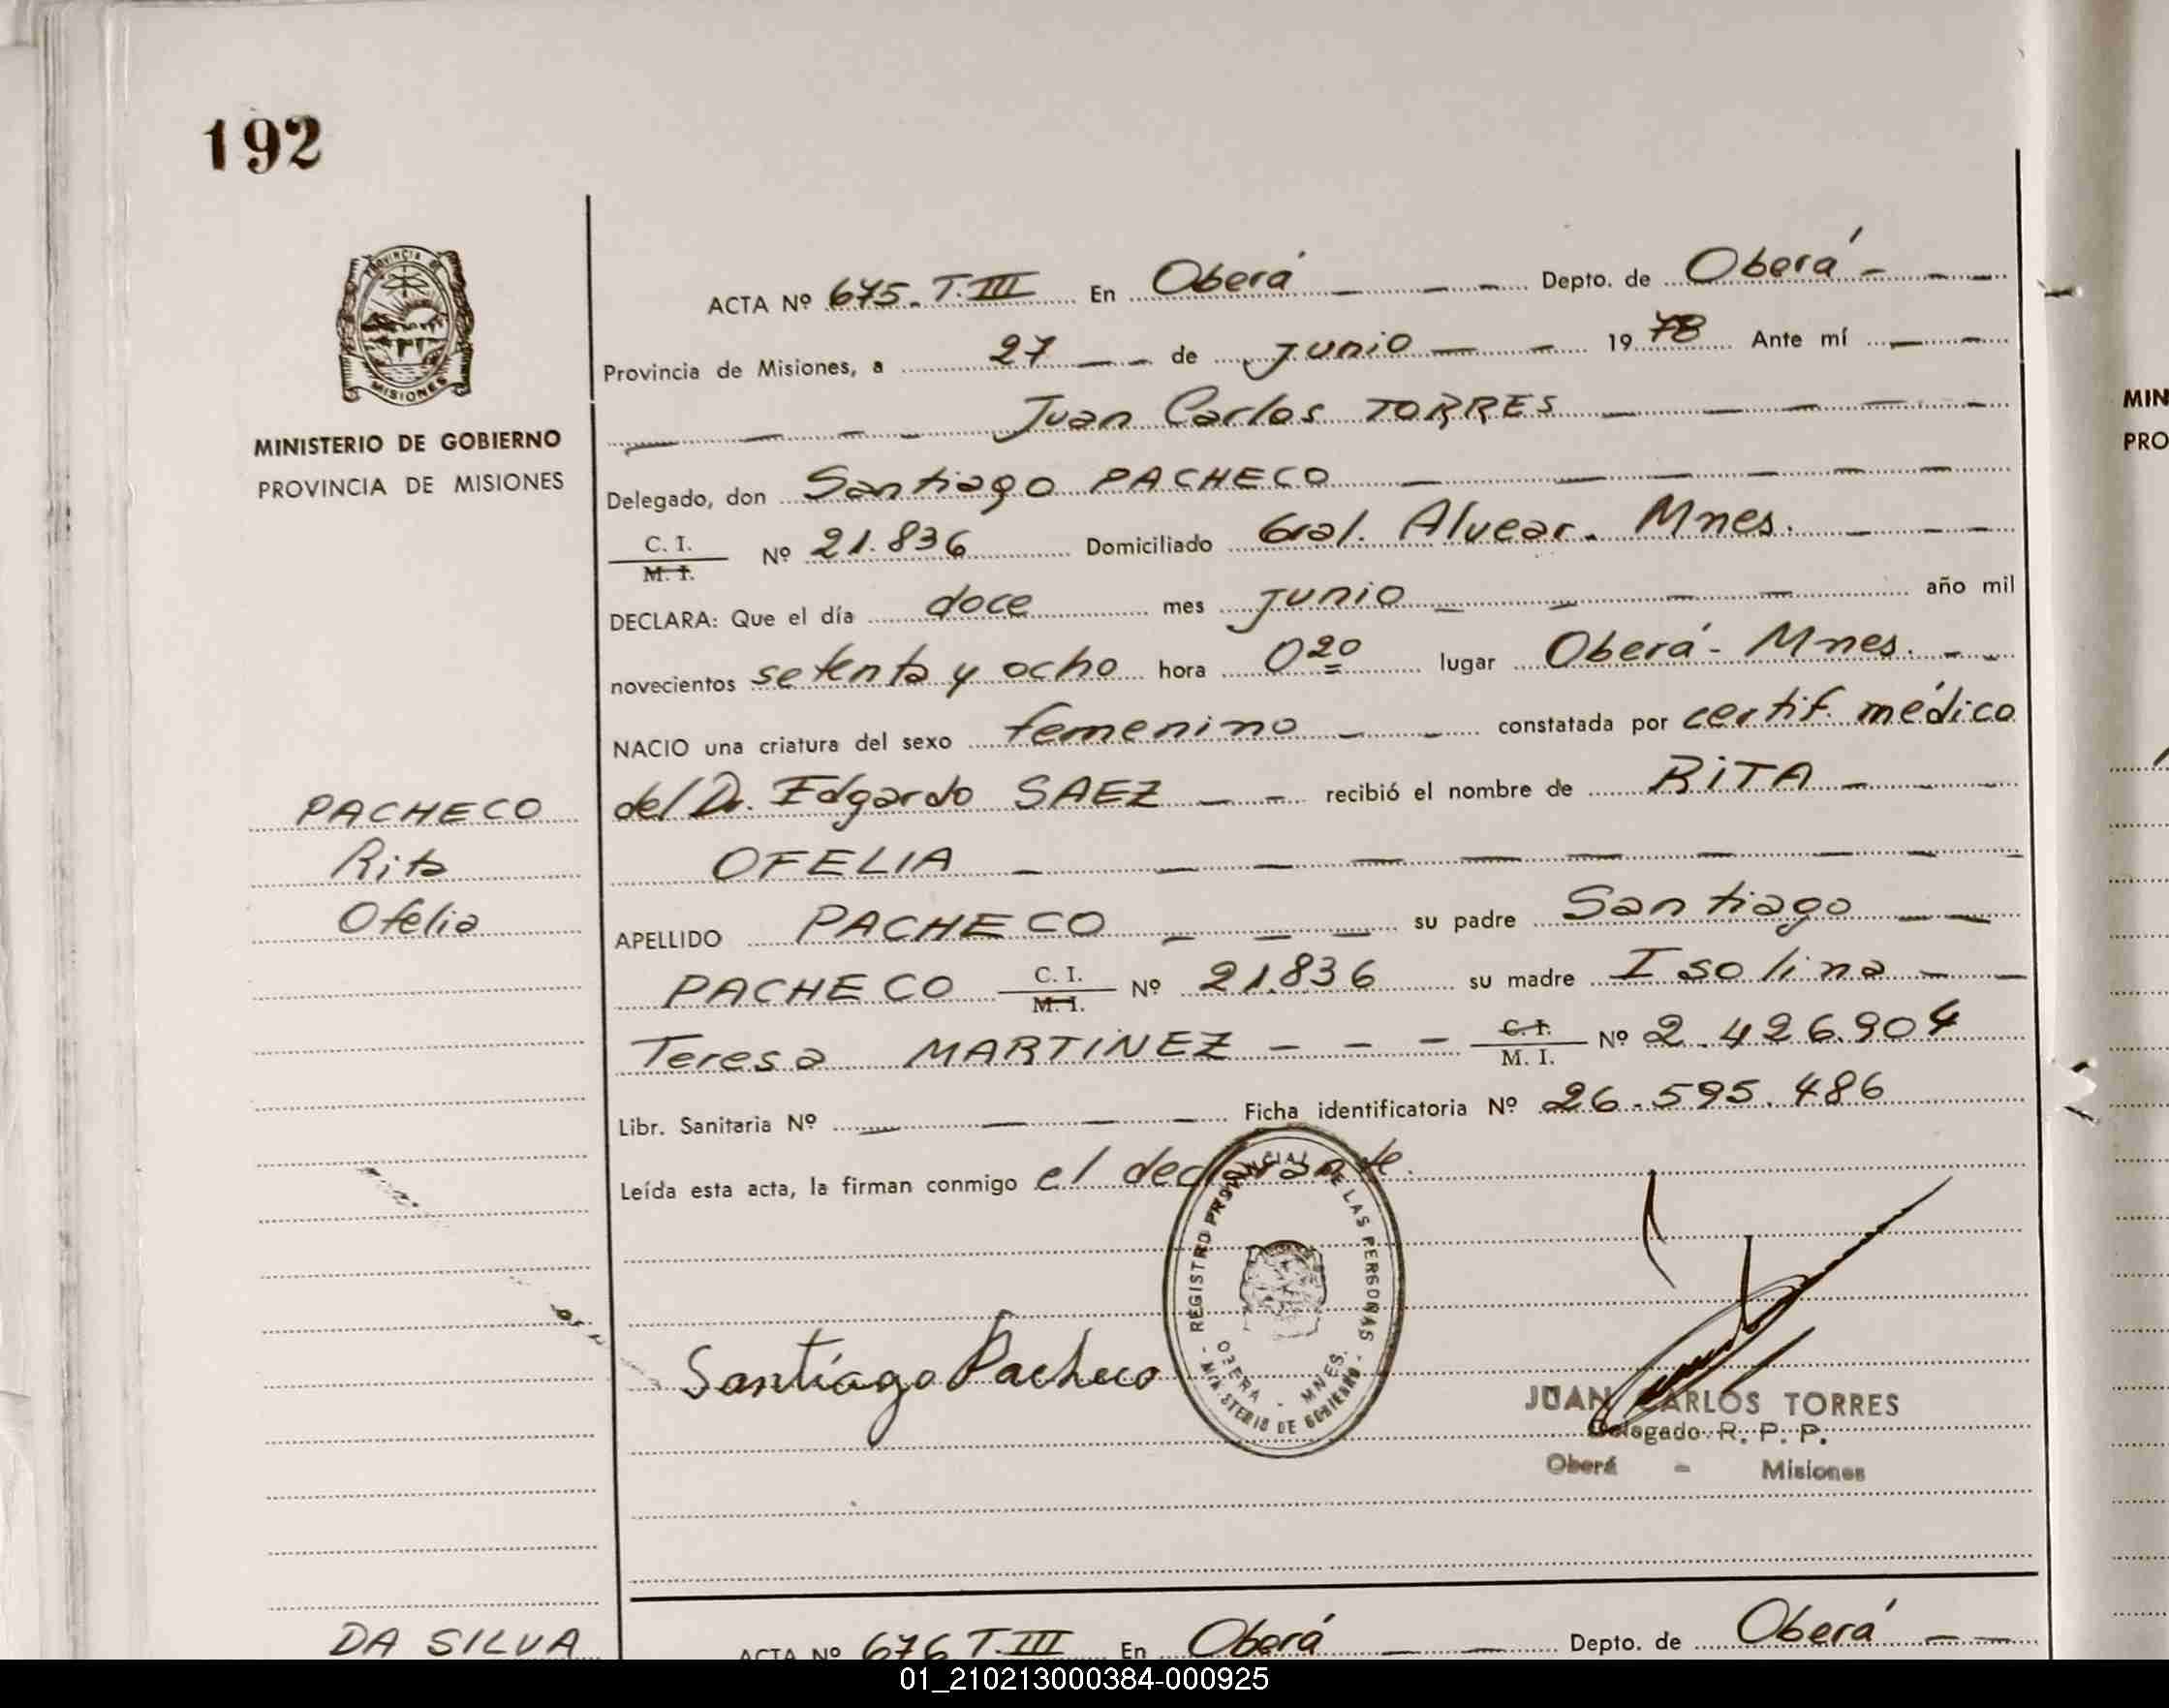 192
PROVINCIA DE
MISIONES
MINISTERIO DE GOBIERNO
PROVINCIA DE MISIONES
ACTA Nº 675. T. III En Oberá Depto. de Oberá
Provincia de Misiones, a 27 de junio 1978 Ante mí
Juan Carlos TORRES
Delegado, don Santiago PACHECO
C. I.
M. I. Nº 21.836 Domiciliado Gral. Alvear. Mnes.
DECLARA: Que el día doce mes junio año mil
novecientos setenta y ocho hora 0 20 lugar Oberá - Mnes.
NACIO una criatura del sexo femenino constatada por certif. médico
del Dr. Edgardo SAEZ recibió el nombre de RITA
OFELIA
APELLIDO PACHECO su padre Santiago
PACHECO C. I. M. I. Nº 21.836 su madre Isolina
Teresa MARTINEZ C. I. M. I. Nº 2.426.904
Libr. Sanitaria Nº Ficha identificatoria Nº 26.595.486
Leída esta acta, la firman conmigo el declarante.
PACHECO
Rita
Ofelia
REGISTRO PROVINCIAL DE LAS PERSONAS
OBERA - MNES.
- MINISTERIO DE GOBIERNO -
Santiago Pacheco
JUAN CARLOS TORRES
Delegado R. P. P.
Oberá - Misiones
DA SILVA
ACTA Nº 676 T. III En Oberá Depto. de Oberá
MIN
PRO
01_210213000384-000925